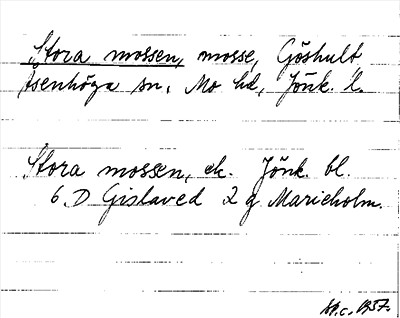 Stora mossen, mosse, Göshult,
Åsenhöga sn, Mo hd, Jönk. l.
Stora mossen, ek. Jönk. bl.
6 D Gislaved 2 g Marieholm.
1957.